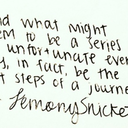 nd what might
em to be a series
unfortunate even
s, in fact, be the
t steps of a journe
Lemony Snicke